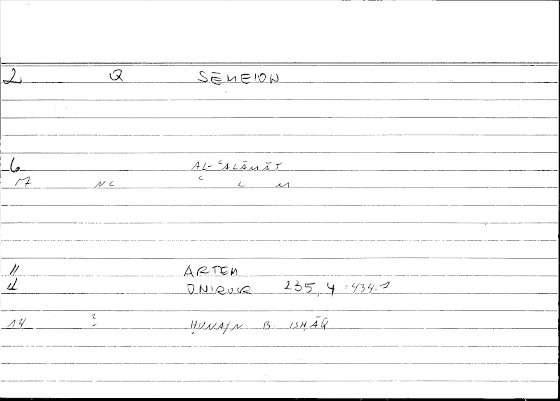 2 Q SEMEION
6 AL-ʿALĀMĀT
17 NC C L M
11 ARTEM
4 ONIROCR 235, 4-434.1
14 ? ḤUNAYN B. ISḤĀQ